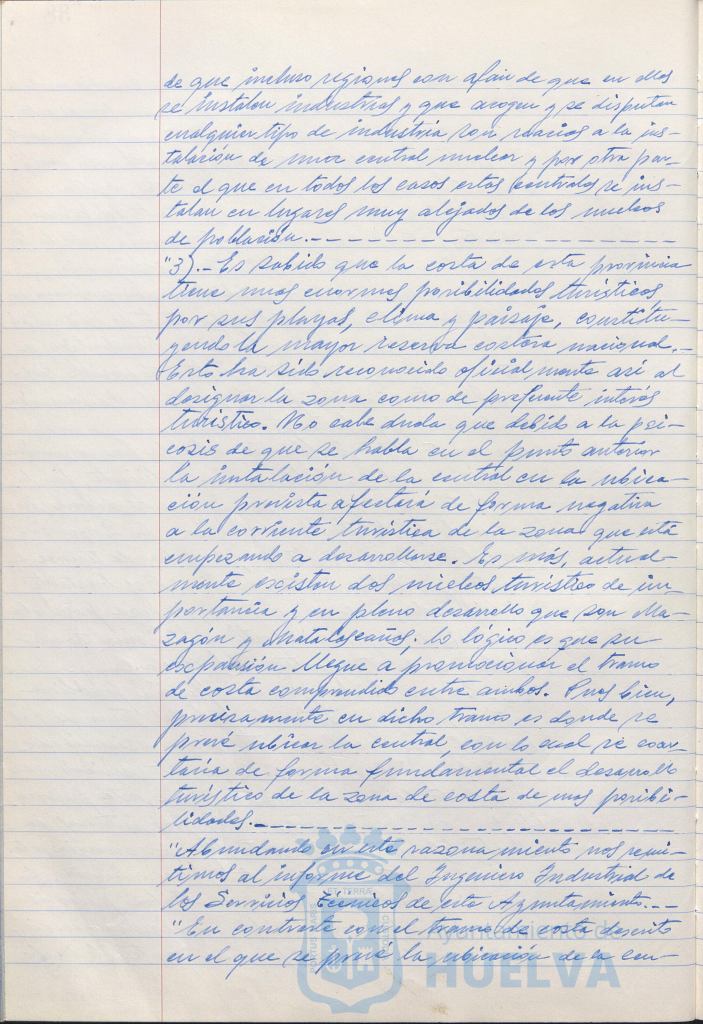 de que incluso regiones con afán de que en ellas
se instalen industrias y que acogen y se disputan
cualquier tipo de industria son reacios a la ins-
talación de una central nuclear y por otra par-
te el que en todos los casos estas centrales se ins-
talan en lugares muy alejados de los nucleos
de población.-
"3).- Es sabido que la costa de esta provincia
tiene unas enormes posibilidades turísticas
por sus playas, clima y paisaje, constitu-
yendo la mayor reserva costera nacional.-
Esto ha sido reconocido oficialmente así al
designar la zona como de preferente interés
turístico. No cabe duda que debido a la psi-
cosis de que se habla en el punto anterior
la instalación de la central en la ubica-
ción prevista afectará de forma negativa
a la corriente turística de la zona que está
empezando a desarrollarse. Es más, actual-
mente existen dos nucleos turístico de im-
portancia y en pleno desarrollo que son Ma-
zagón y Matalascañas; lo lógico es que su
expansión llegue a promocionar el tramo
de costa comprendido entre ambos. Pues bien,
precisamente en dicho tramo es donde se
prevé ubicar la central, con lo cual se coar-
taría de forma fundamental el desarrollo
turístico de la zona de costa de mas posibi-
lidades.-
"Abundando en este razonamiento nos remi-
timos al informe del Ingeniero Industrial de
los Servicios Técnicos de este Ayuntamiento.--
"En contraste con el tramo de costa descrito
en el que se prevé la ubicación de la cen-
Ayuntamiento de
HUELVA